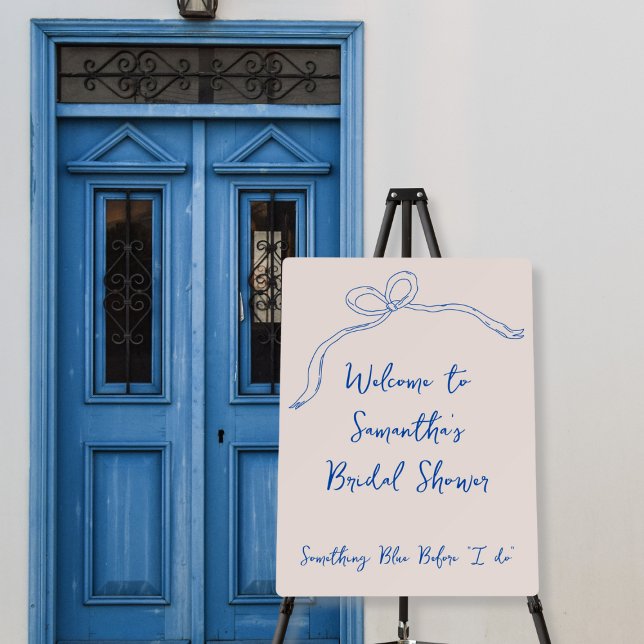 Welcome to
Samantha's
Bridal Shower
Something Blue Before "I do"